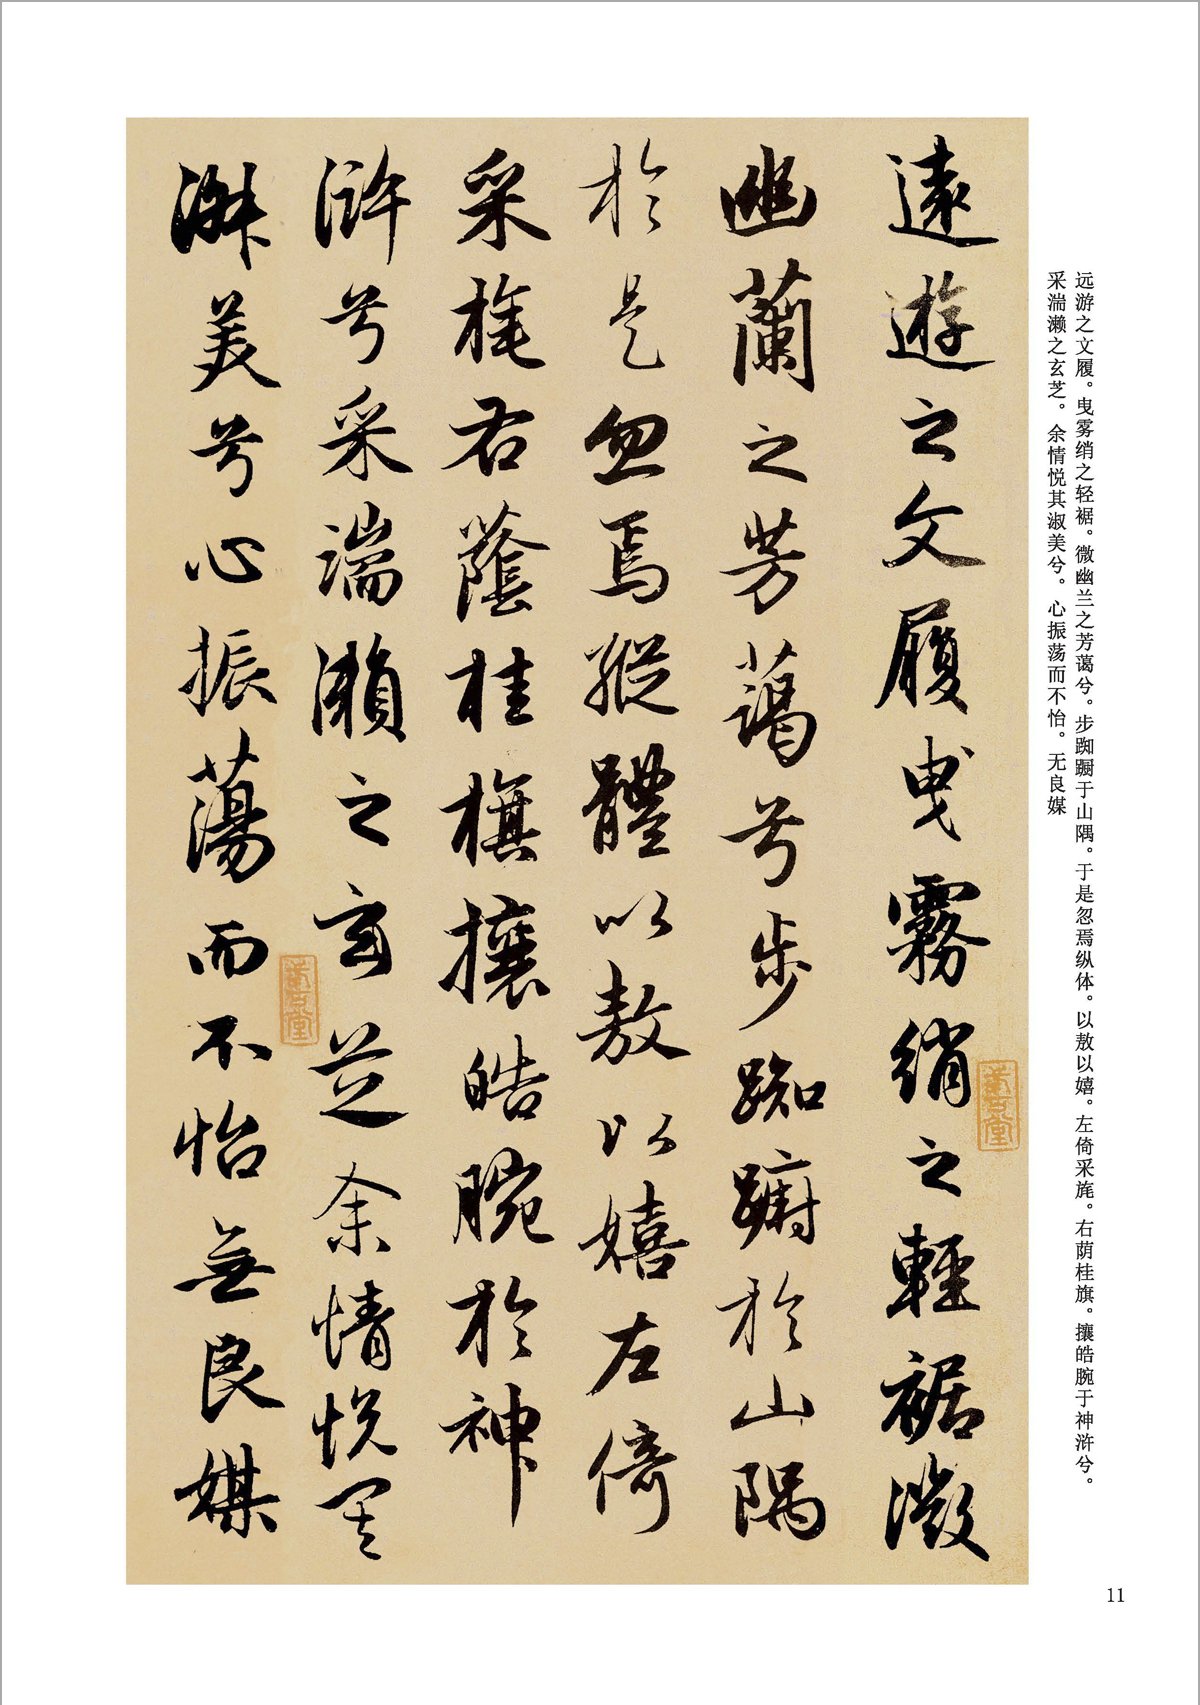 远游之文履。曳雾绡之轻裾。微幽兰之芳蔼兮。步踟蹰于山隅。于是忽焉纵体。以敖以嬉。左倚采旄。右荫桂旗。攘皓腕于神浒兮。
采湍濑之玄芝。余情悦其淑美兮。心振荡而不怡。无良媒
遠遊之文履曳霧綃之輕裾微
幽蘭之芳藹兮步踟躕於山隅
於是忽焉縱體以敖以嬉左倚
采旄右蔭桂旗攘皓腕於神
滸兮采湍瀨之玄芝余情悅其
淑美兮心振蕩而不怡無良媒
11